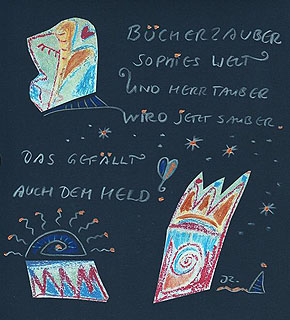 BÜCHERZAUBER
SOPHIES WELT
UND HERR TAUBER
WIRD JETZT SAUBER.
DAS GEFÄLLT
AUCH DEM HELD!
JZ.